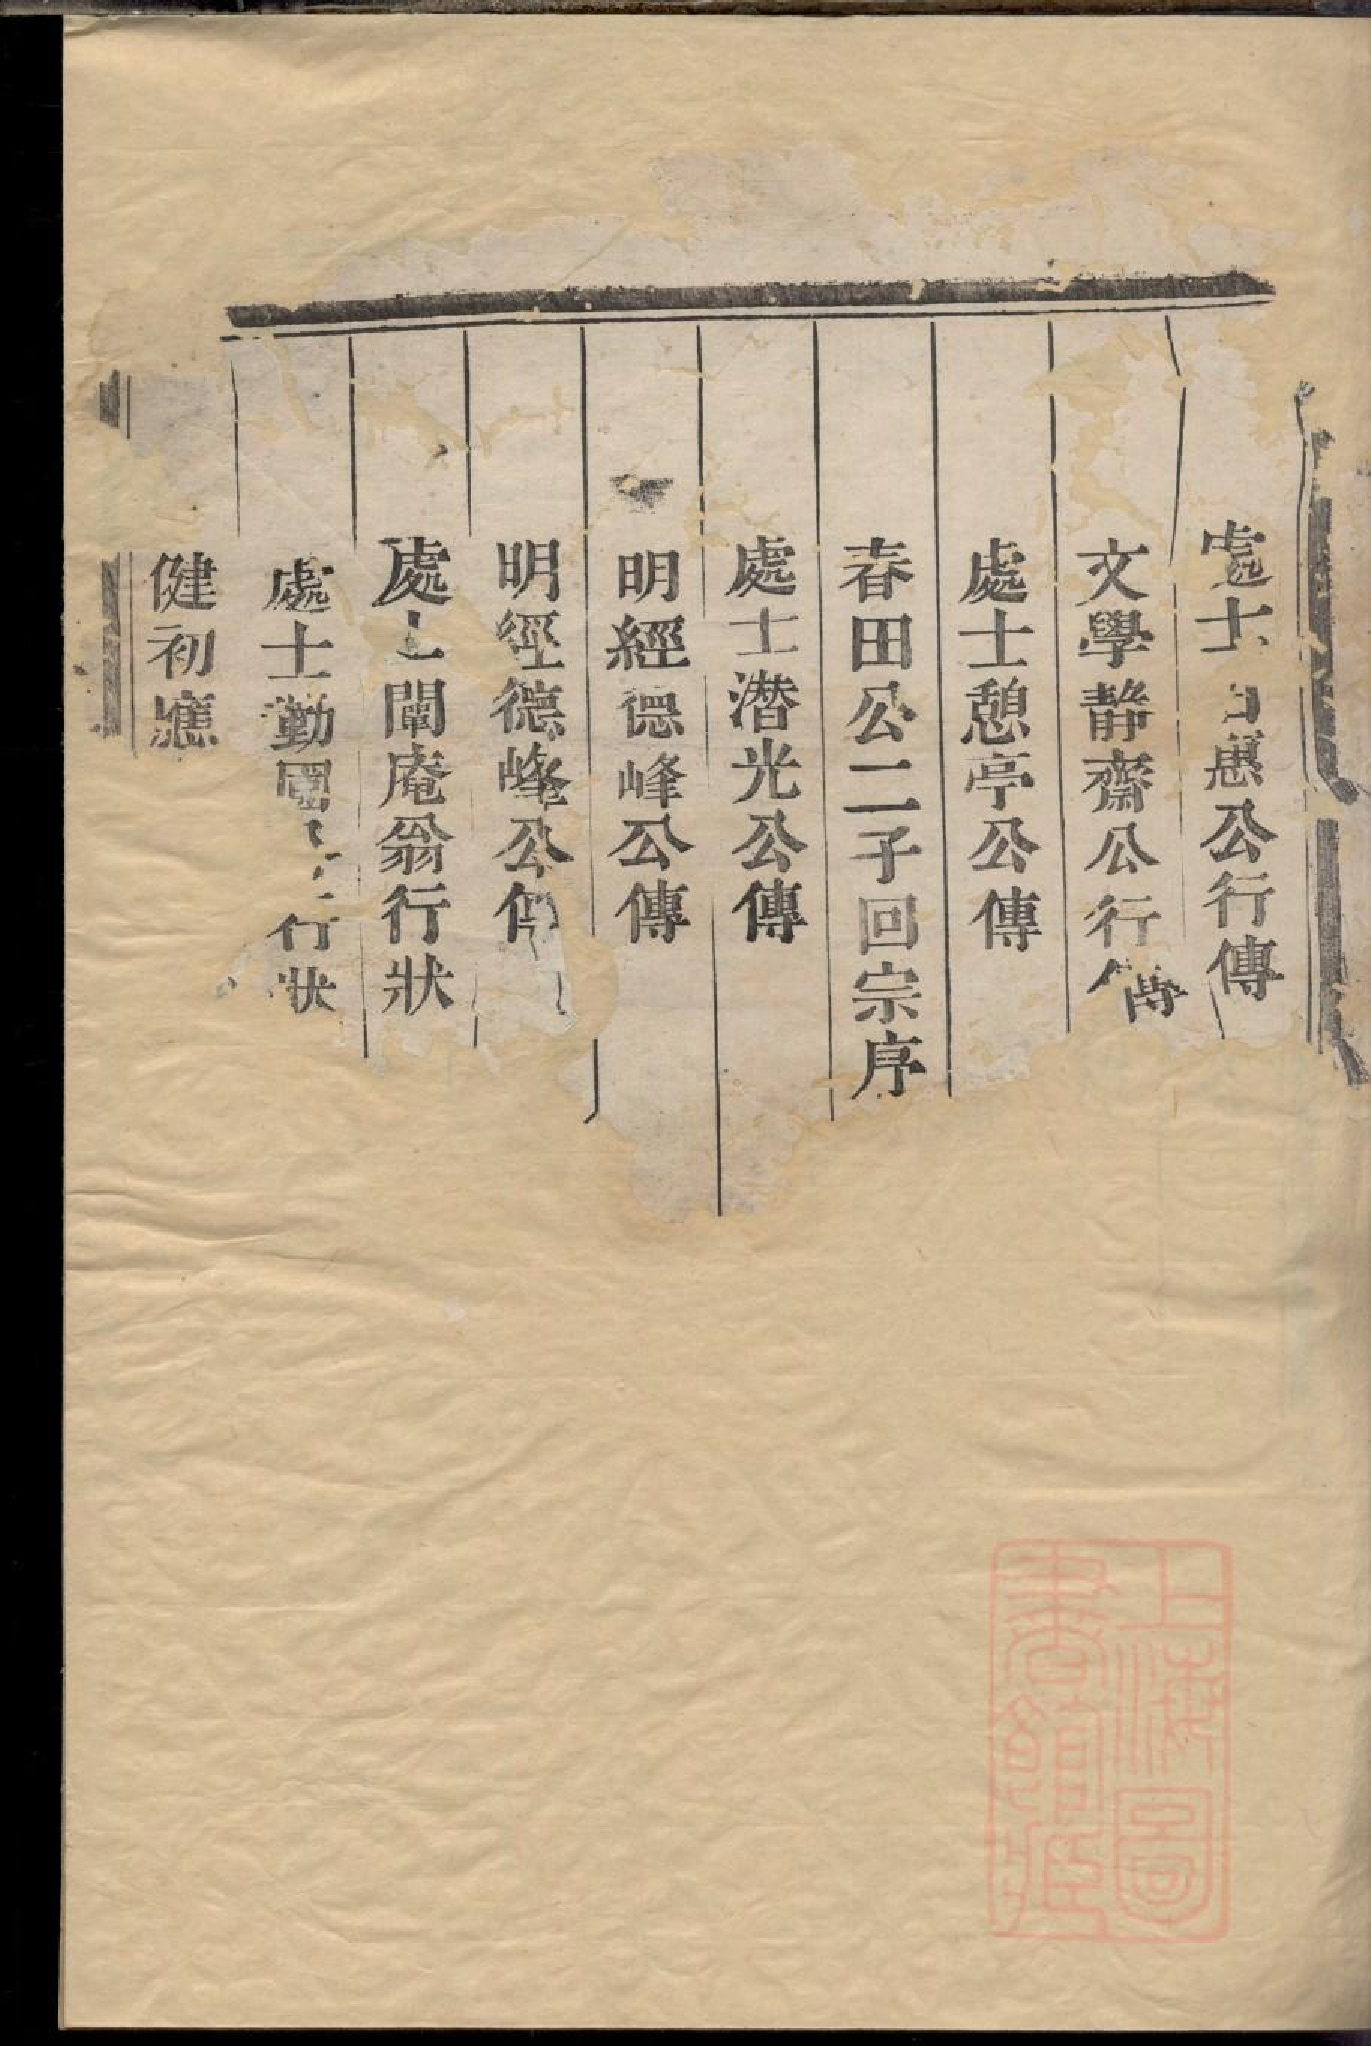 處士惠公行傳
文學静齋公行傳
處士憩亭公傳
春田公二子回宗序
處士潜光公傳
明經德峰公傳
明經德峰公傳
處士闡庵翁行狀
處士勤園行狀
健初應
上海圖
書館藏